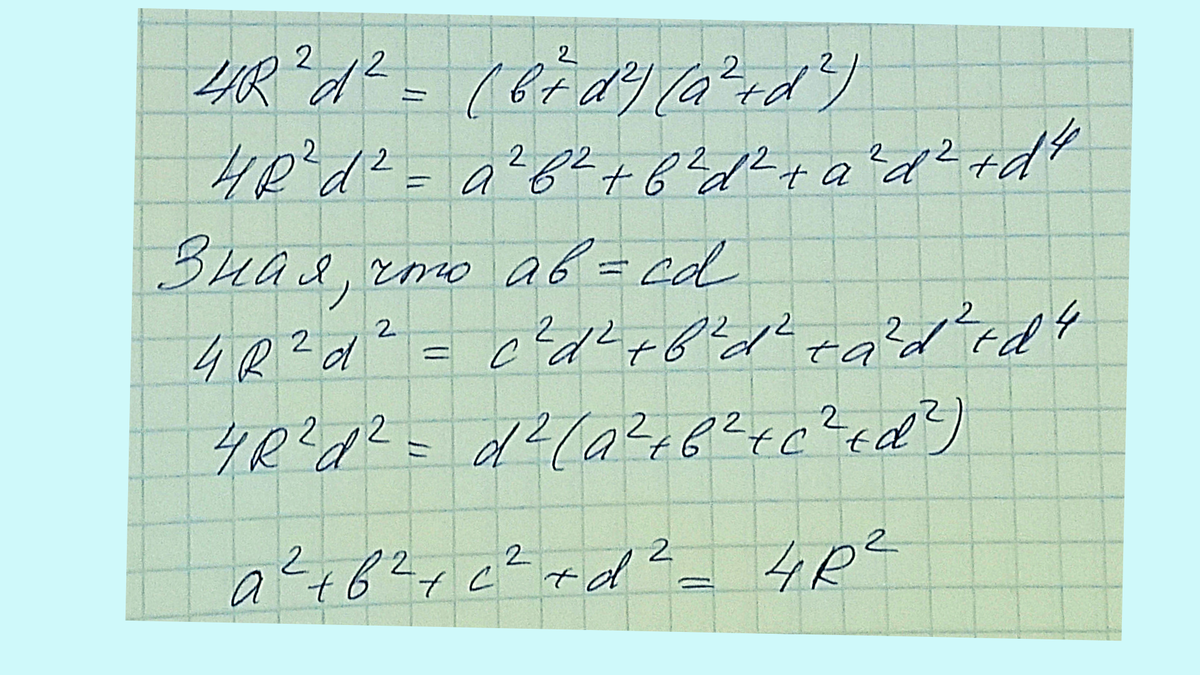 4R²d² = (в²+d²)(a²+d²)
4R²d² = a²в²+в²d²+a²d²+d⁴
Зная, что aв=cd
4R²d² = c²d²+в²d²+a²d²+d⁴
4R²d² = d²(a²+в²+c²+d²)
a²+в²+c²+d² = 4R²